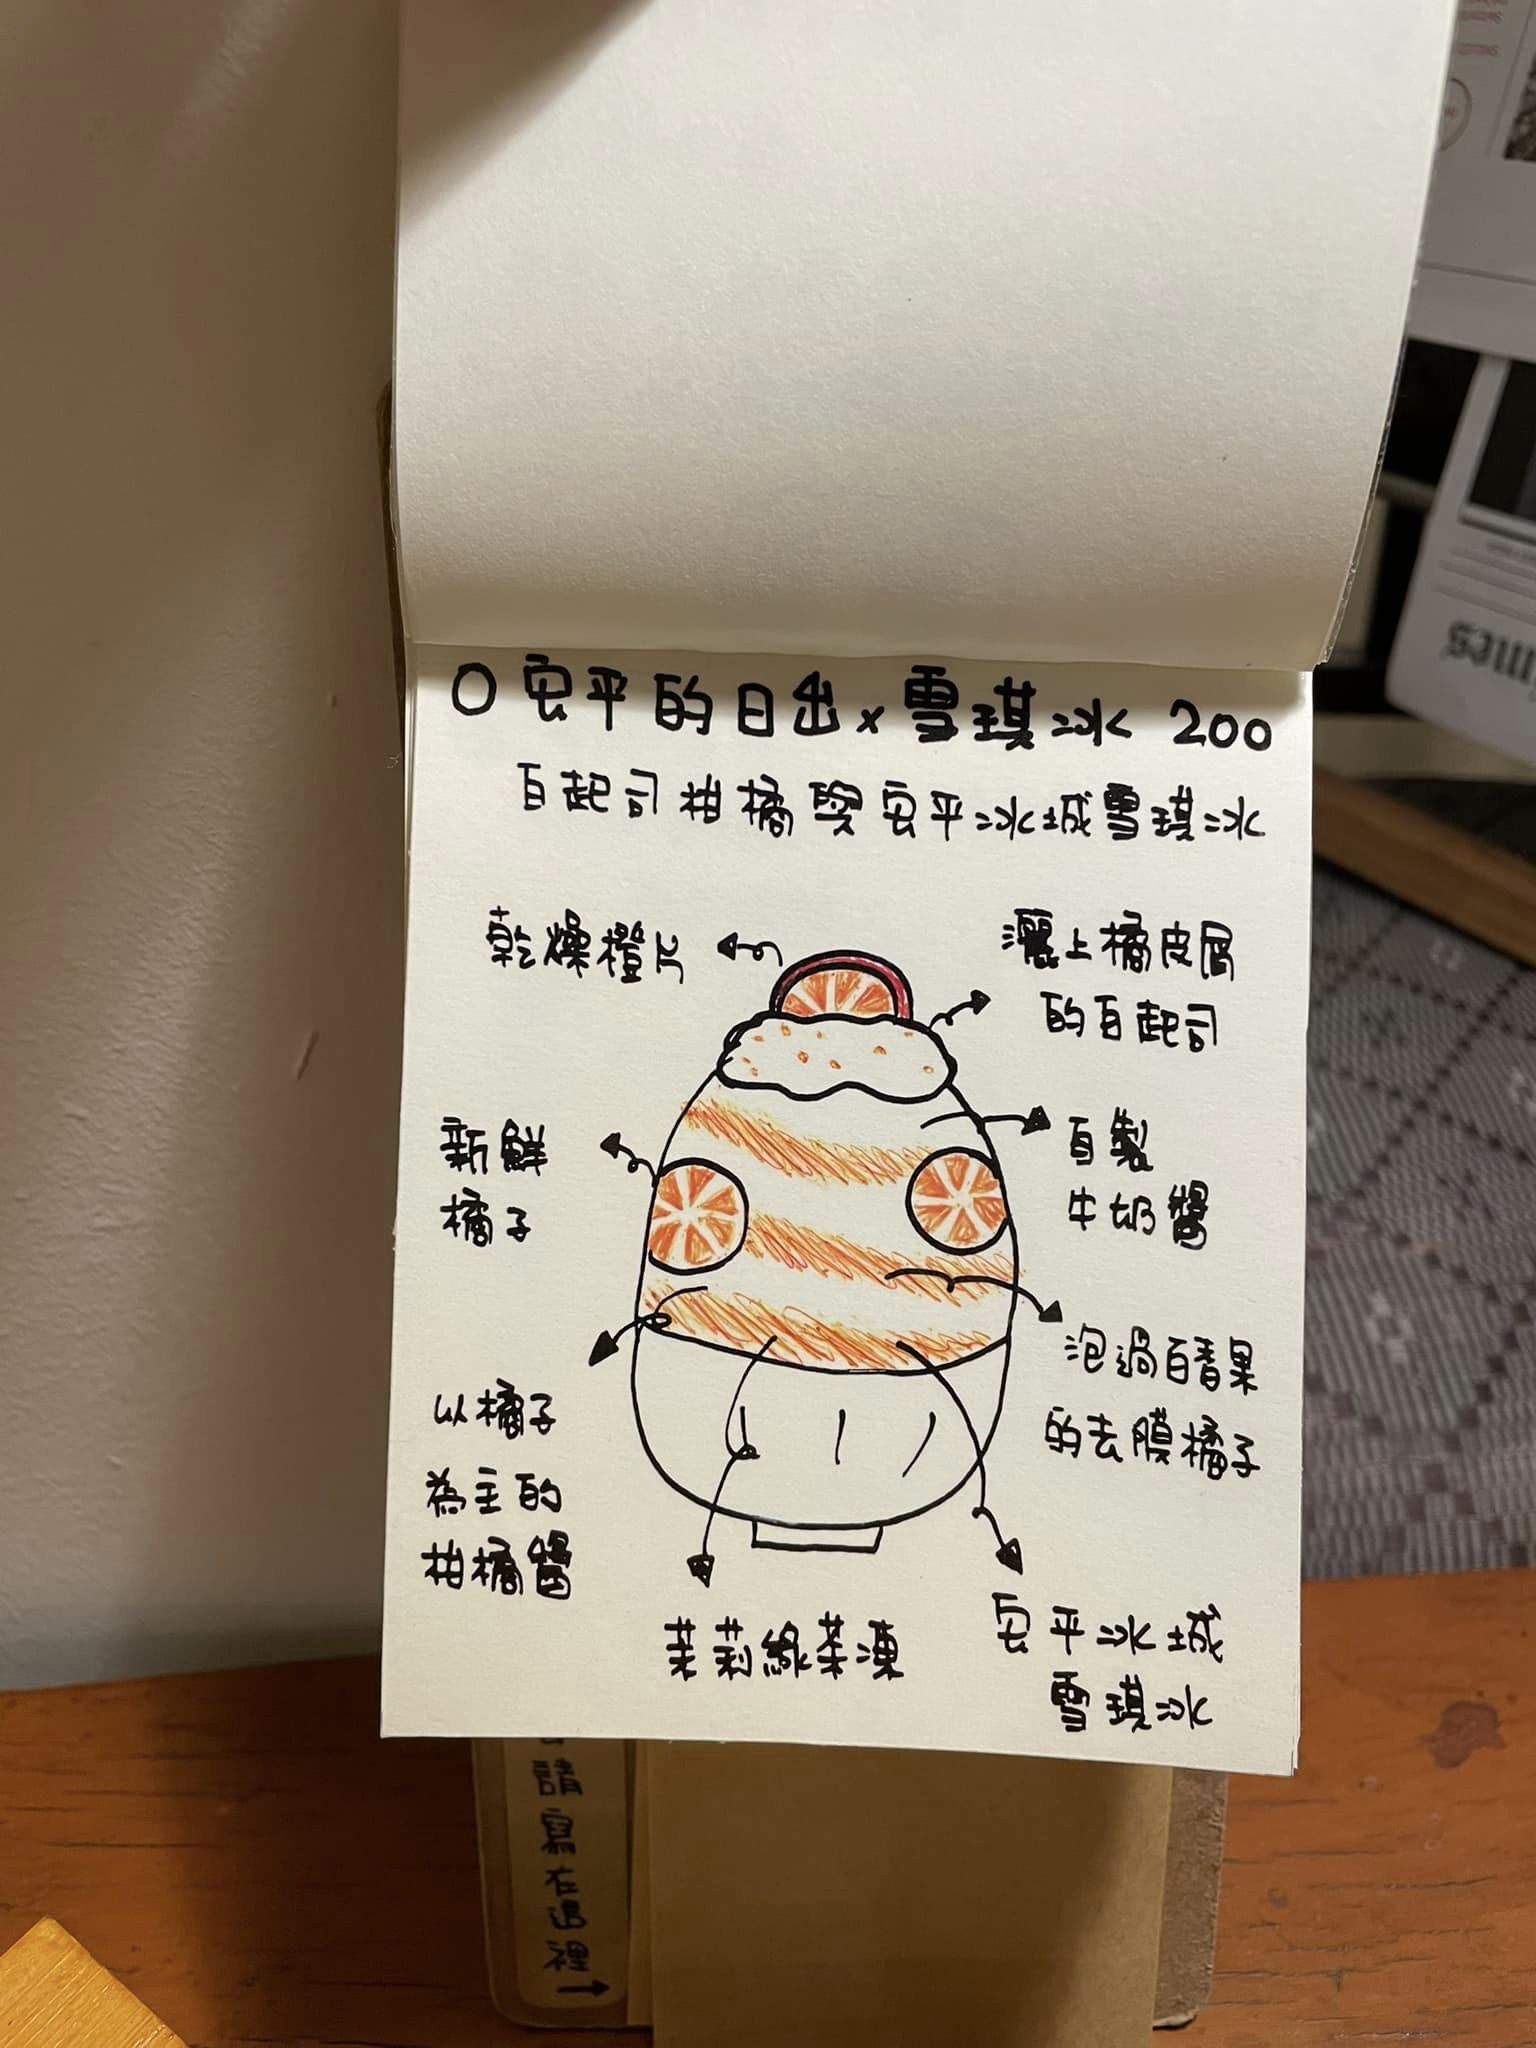 O 安平的日出x雪琪冰 200
白起司柑橘與安平冰城雪琪冰
乾燥橙片
灑上橘皮屑
的白起司
新鮮
橘子
自製
牛奶醬
泡過百香果
的去膜橘子
以橘子
為主的
柑橘醬
茉莉綠茶凍
安平冰城
雪琪冰
請寫在這裡→